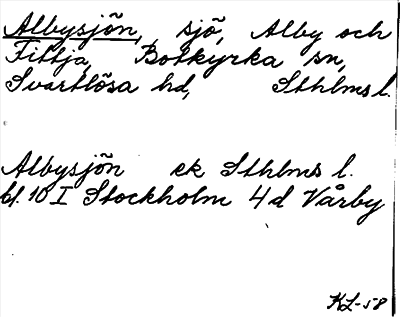 Albysjön, sjö, Alby och
Fittja, Botkyrka sn,
Svartlösa hd, Sthlms l.
Albysjön ek Sthlms l.
bl. 10 I Stockholm 4 d Vårby
KL-58